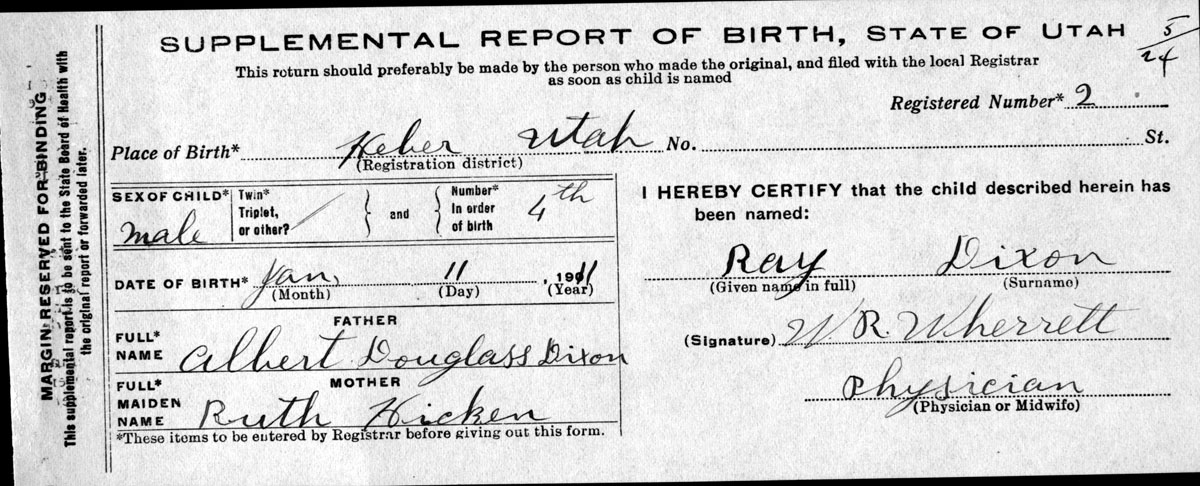 SUPPLEMENTAL REPORT OF BIRTH, STATE OF UTAH
5/24
This return should preferably be made by the person who made the original, and filed with the local Registrar
as soon as child is named
Registered Number* 2
Place of Birth* Heber Utah No. St.
(Registration district)
SEX OF CHILD* male
Twin* Triplet, or other? } and { Number* In order of birth 4th
DATE OF BIRTH* Jan. 11, 1911
(Month) (Day) (Year)
FATHER
FULL* NAME Albert Douglass Dixon
MOTHER
FULL* MAIDEN NAME Ruth Hicken
*These items to be entered by Registrar before giving out this form.
I HEREBY CERTIFY that the child described herein has
been named:
Ray Dixon
(Given name in full) (Surname)
(Signature) W. R. Wherrett
Physician
(Physician or Midwife)
MARGIN RESERVED FOR BINDING
This supplemental report is to be sent to the State Board of Health with
the original report or forwarded later.